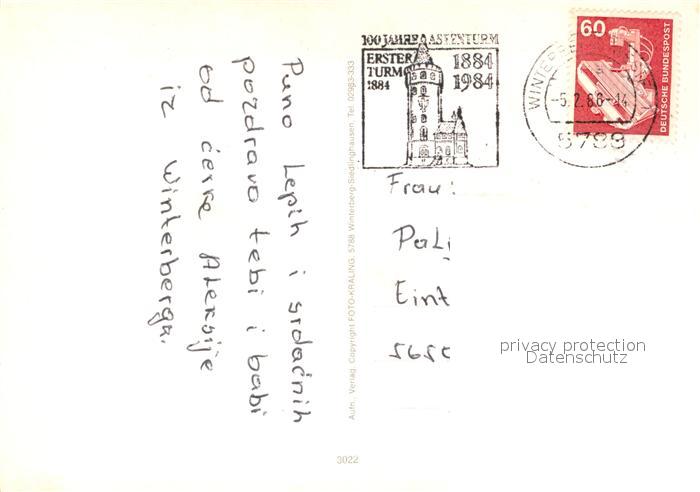 100 JAHRE ASTENTURM
ERSTER
TURM
1884
1884
1984
60
DEUTSCHE BUNDESPOST
-5.2.86-14
5788
Puno Lepih i srdačnih
pozdravo tebi i babi
od ćerke Aleksije
iz Winterberga.
Aufn., Verlag, Copyright FOTO-KRALING, 5788 Winterberg-Siedlinghausen, Tel. 02983-333
Frau:
Eint
privacy protection
Datenschutz
3022